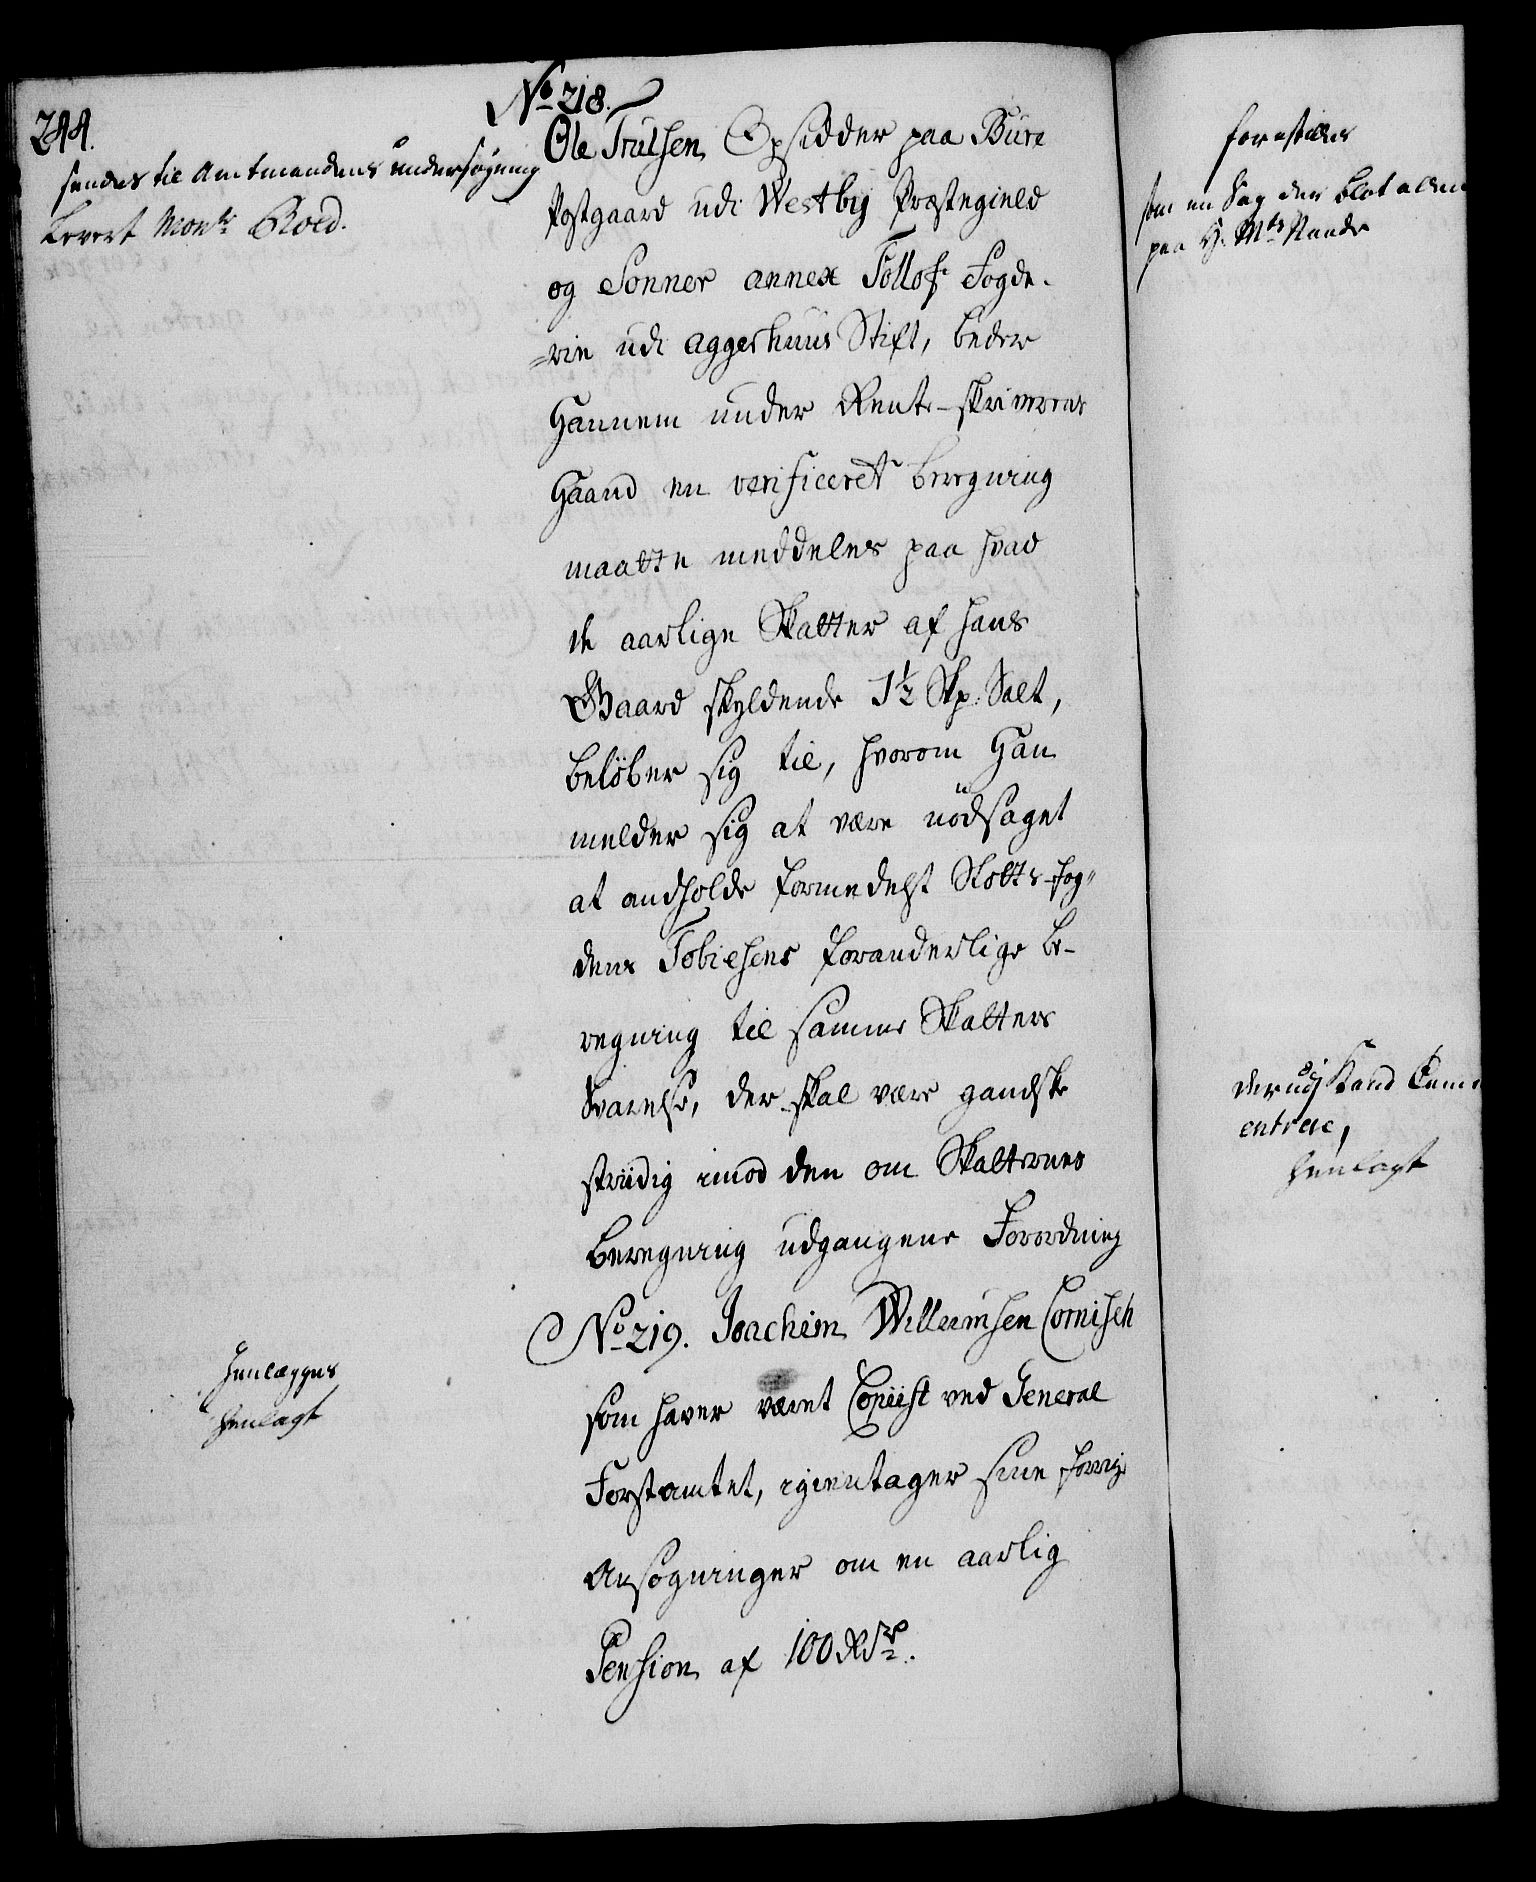 244.
No 218.
sendes til Amtmandens undersøgning
Levert Monsr Roed.
Ole Trulsen Opsidder paa Bure
Postgaard udi Westby Præstegield
og Sonner annex Follof Fogde-
=rie udi Aggershuus Stift, beder
Hannem under Rente-skriverens
Haand en verificeret beregning
maatte meddeles paa hvad
de aarlige Skatter af hans
Gaard skyldende 1½ Skp: Salt,
beløber sig til, hvorom Han
melder sig at være nödsaget
at andholde formedelst Slotts-Fog-
dens Tobiesens foranderlige be-
regning til samme Skatters
Svarelse, der skal være gandske
striidig imod den om Skatternes
beregning udgangene Forordning
No 219. Joachim Willumsen Cornisch
som haver været Copiist ved General
Forstamtet, igientager sine forrige
Ansøgninger om en aarlig
Pension af 100 Rdr.
henlægges
henlagt
forestilles
som en Sag der blot allene
paa H. Mts Naade
entrere,
henlagt